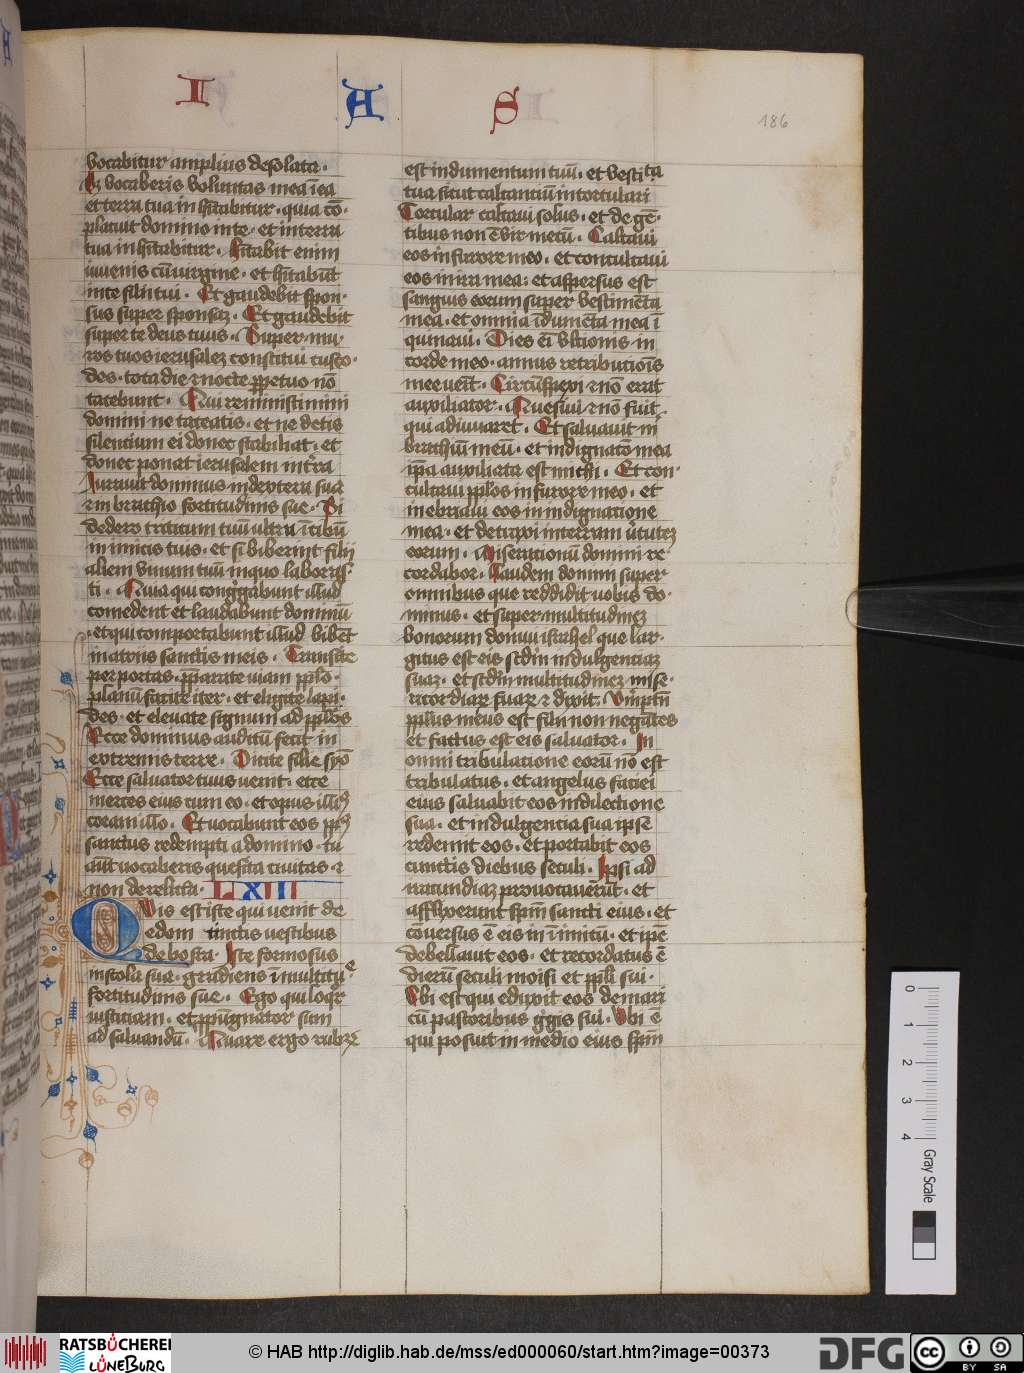 I A S
186
vocabitur amplius desolata ·
Sʒ vocaberis voluntas mea ī ea
et terra tua inhītabitur · quia cō·
placuit domino in te · et in terra
tua inhītabitur · hītabit enim
iuuenis cū uirgine · et hītabūt
in te filii tui · Et gaudebit spon·
sus super sponsaʒ · Et gaudebit
super te deus tuus · Super mu·
ros tuos ierusaleʒ constitui custo·
des · tota die ⁊ nocte ꝑpetuo nō
tacebunt · Qui reministimini
domini ne taceatis · et ne detis
silencium ei donec stabiliat · et
donec ponat ierusalem in t̄ra
Iurauit dominus in dextera sua
⁊ in brachio fortitudinis sue · Si
dedero triticum tuū ultra ī cibū
inimicis tuis · et si biberint filii
alieni vinum tuū in quo laboras·
ti · Quia qui cong̃gabunt illud
comedent et laudabunt dominū
· et qui comportabunt illud bibēt
in atriis sanctis meis · Transite
per portas · p̄parate uiam ppl̄o ·
planū facite iter · et eligite lapi·
des · et eleuate signum ad ppl̄os
Ecce dominus auditū fecit in
extremis terre · Dicite filie syō
Ecce saluator tuus uenit · ecce
merces eius cum eo · et opus illiꝰ
coram illo · Et uocabunt eos pplꝰ
sanctus redempti a domino · tu
aūt uocaberis quesita ciuitas · ⁊
non derelicta · LXIII
Quis est iste qui uenit de
edom tinctis vestibus
de bosra · Iste formosus
in stola sua · gradiens ī multitud̄e
fortitudinis sue · Ego qui loqͬr
iusticiam · et ꝓpugnator sum
ad saluandū · Quare ergo rubr̄
est indumentum tuū · et vestīta
tua sicut calcantiū in torculari
Torcular calcaui solus · et de gē·
tibus non ē vir mecū · Calcaui
eos in furore meo · et conculcaui
eos in ira mea : et aspersus est
sanguis eorum super vestimēta
mea · et omnia īdumēta mea ī
quinaui · Dies eī vltionis in
corde meo · annus retributiōis
mee ueīt · Circūspexi ⁊ nō erat
auxiliator · Quesiui ⁊ nō fuit
qui adiuuaret · Et saluauit m̄
brachiū meū · et indignatō mea
ip̄a auxiliata est michi · Et con·
culcaui ppl̄os in furore meo · et
inebriaui eos in indignatione
mea · et detraxi in terram ũtuteʒ
eorum · Miserationū domini re
cordabor · Laudem domini super
omnibus que reddidit uobis do·
minus · et super multitudineʒ
bonorum domui israhel que lar·
gitus est eis scd̄m indulgenciaʒ
suaʒ · et scd̄m multitudineʒ mise·
ricordiaꝝ suaꝝ ⁊ dixit · Verūptn̄
ppl̄us meus est filii non negātes
et factus est eis saluator · In
omni tribulatione eorū nō est
tribulatus · et angelus faciei
eius saluabit eos in dilectione
sua · et in indulgencia sua ipse
redemit eos · et portabit eos
cunctis diebus seculi · Ipsi ad
iracundiaʒ prouocauerūt · et
afflixerunt spm̄ sancti eius · et
cōuersus ē eis in inimicū · et ip̄e
debellauit eos · et recordatus ē
dierū seculi moisi et ppl̄i sui ·
Vbi est qui eduxit eos de mari
cū pastoribus g̃gis sui · Vbi ē
qui posuit in medio eius spm̄
0
1
2
3
4
Gray Scale
RATSBÜCHEREI
LÜNEBURG
© HAB http://diglib.hab.de/mss/ed000060/start.htm?image=00373
DFG
cc BY SA